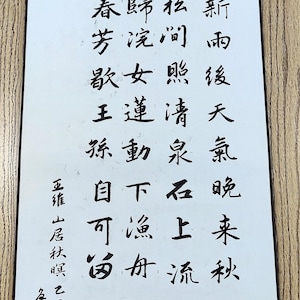 新雨後天氣晚来秋
松澗照清泉石上流
歸浣女蓮動下漁舟
春芳歇王孫自可留
王維山居秋暝